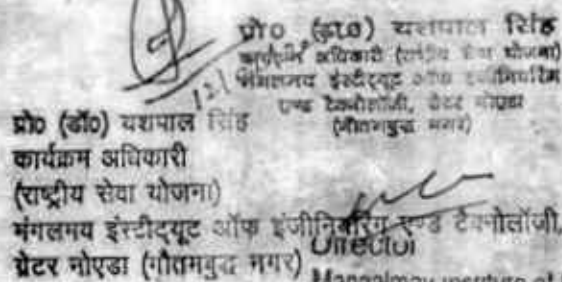 प्रो० (डा०) यशपाल सिंह
कार्यक्रम अधिकारी (राष्ट्रीय सेवा योजना)
मंगलमय इंस्टीट्यूट ऑफ इंजीनियरिंग
एण्ड टैक्नोलॉजी, ग्रेटर नोएडा
(गौतमबुद्ध नगर)
प्रो० (डॉ०) यशपाल सिंह
कार्यक्रम अधिकारी
(राष्ट्रीय सेवा योजना)
मंगलमय इंस्टीट्यूट ऑफ इंजीनियरिंग एण्ड टैक्नोलॉजी,
ग्रेटर नोएडा (गौतमबुद्ध नगर)
Director
Mangalmay Institute of